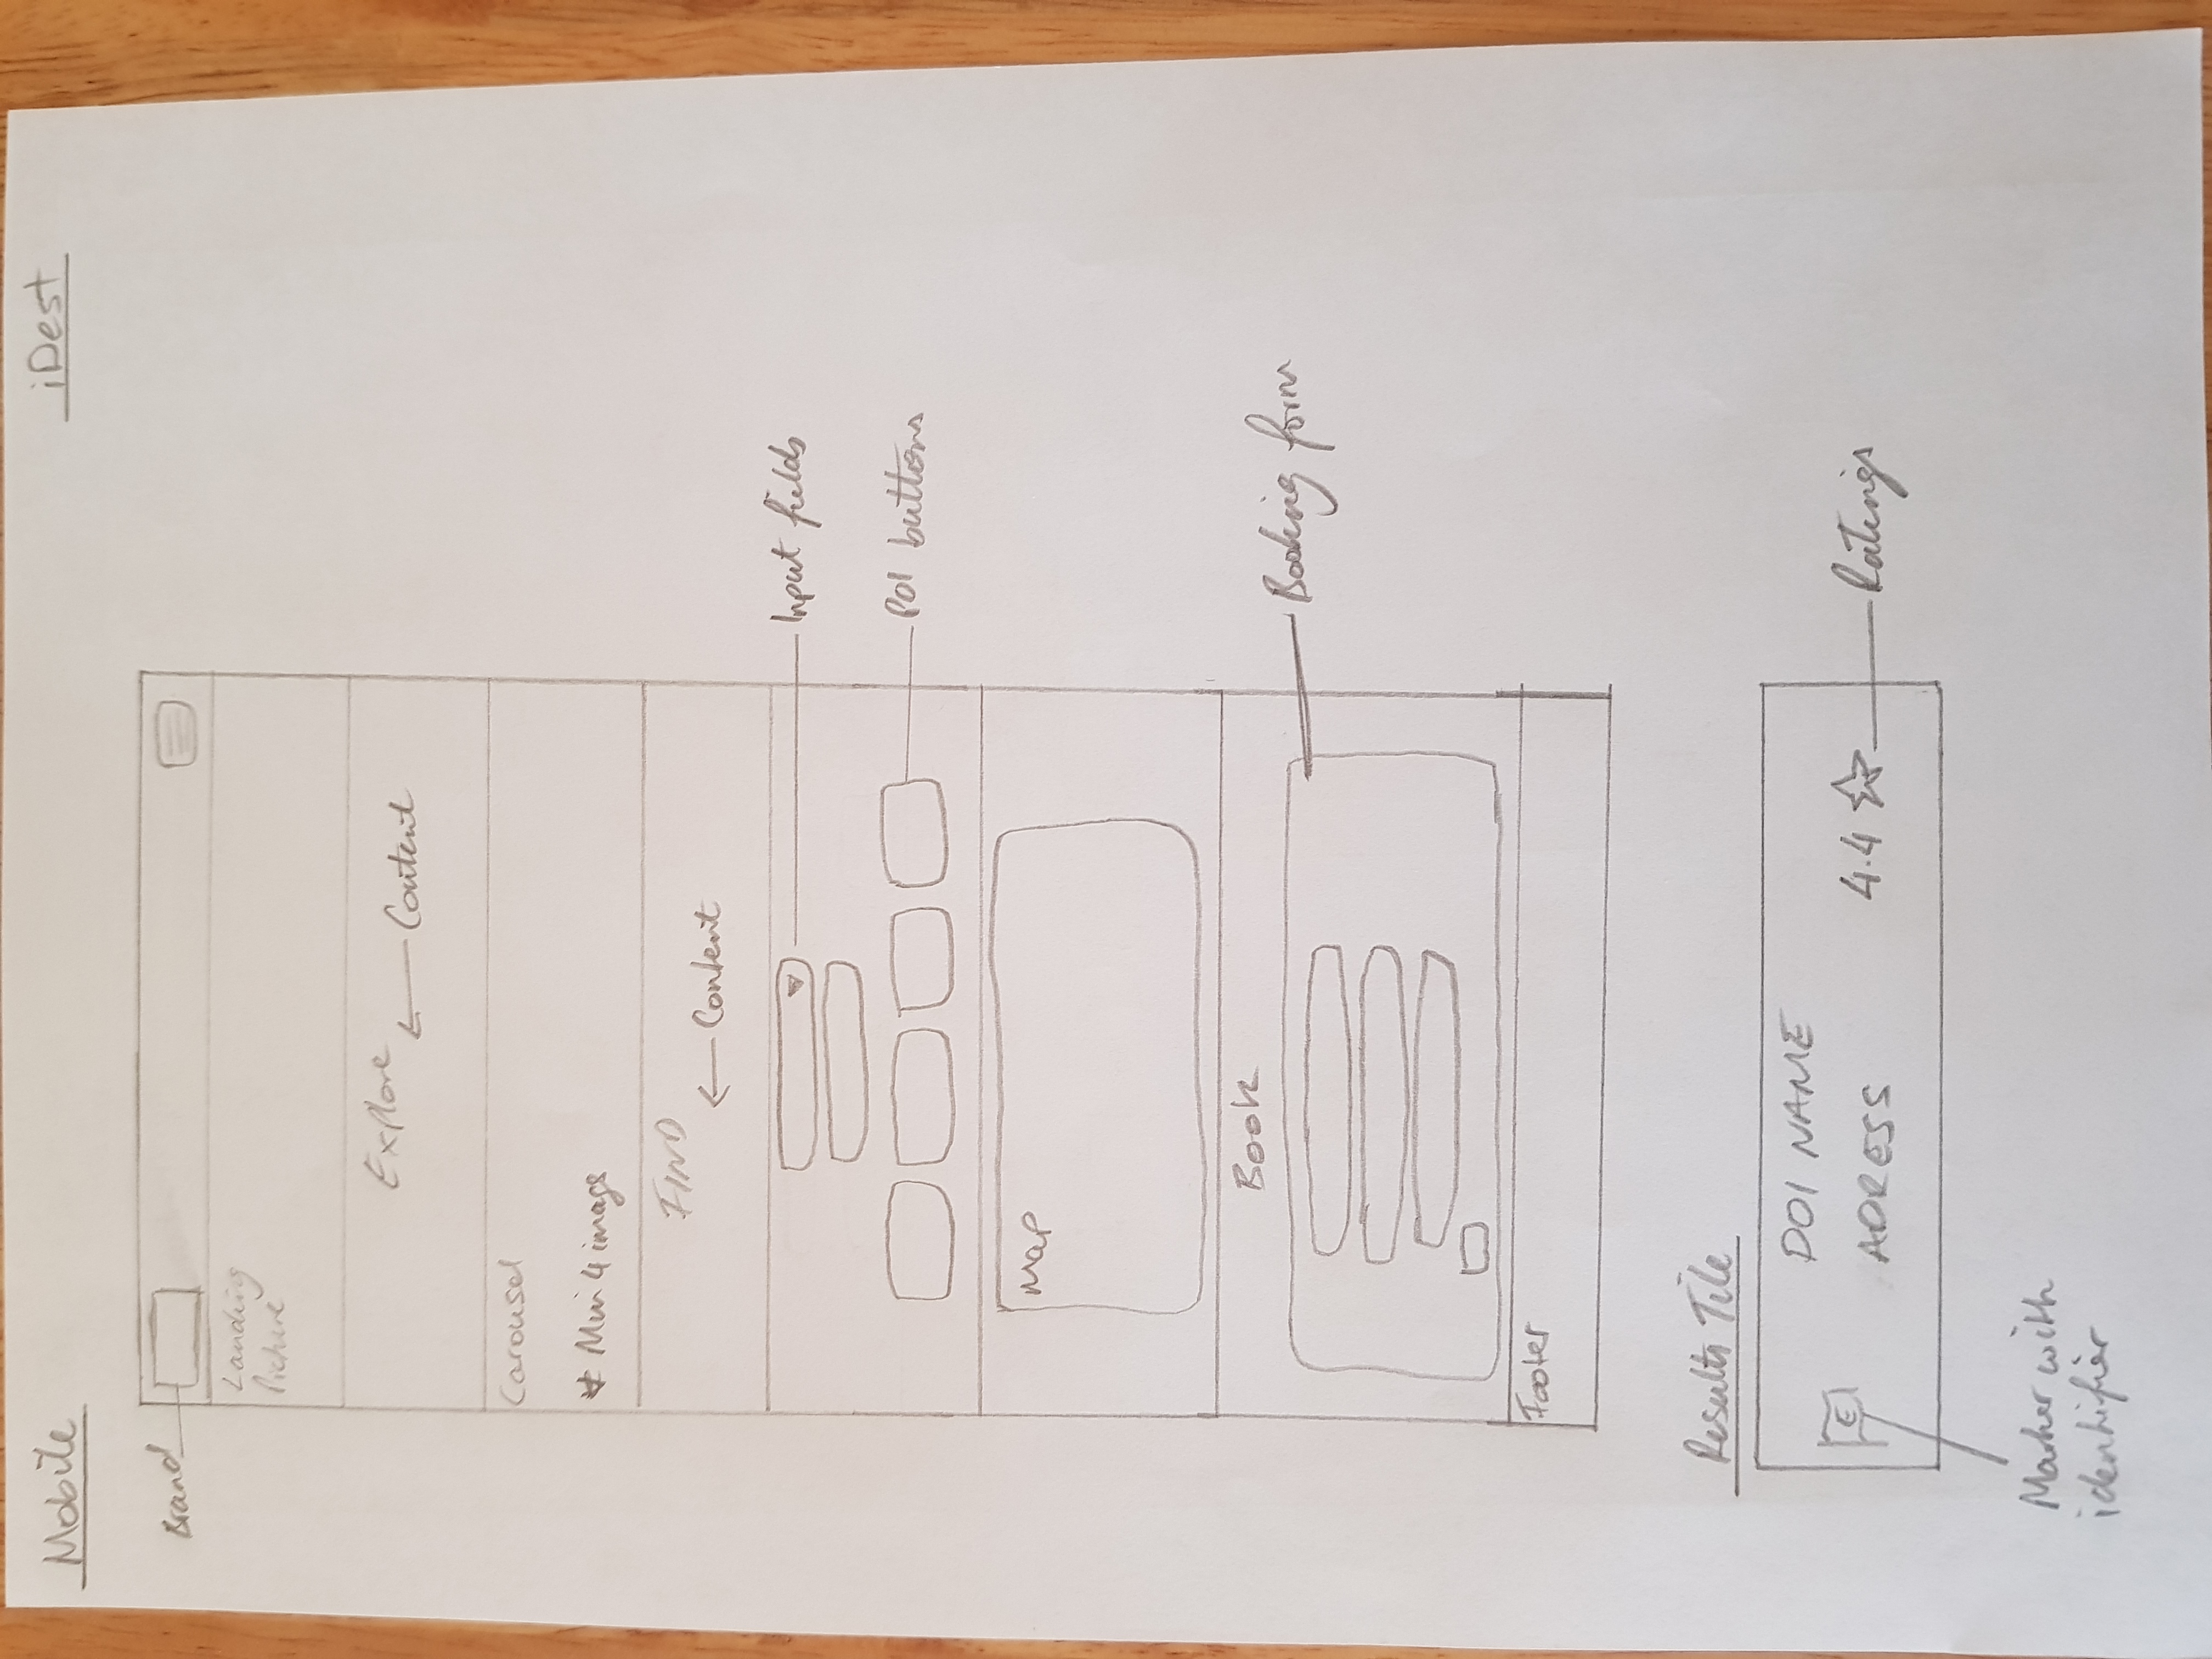 Mobile
iDest
Brand
Landing
Picture
Explore
Content
Carousel
* Min 4 imags
FIND
Content
Input fields
POI buttons
Map
Book
Booking form
Footer
Results Tile
DOI NAME
E
ADRESS
4.4
Ratings
Marker with
identifier